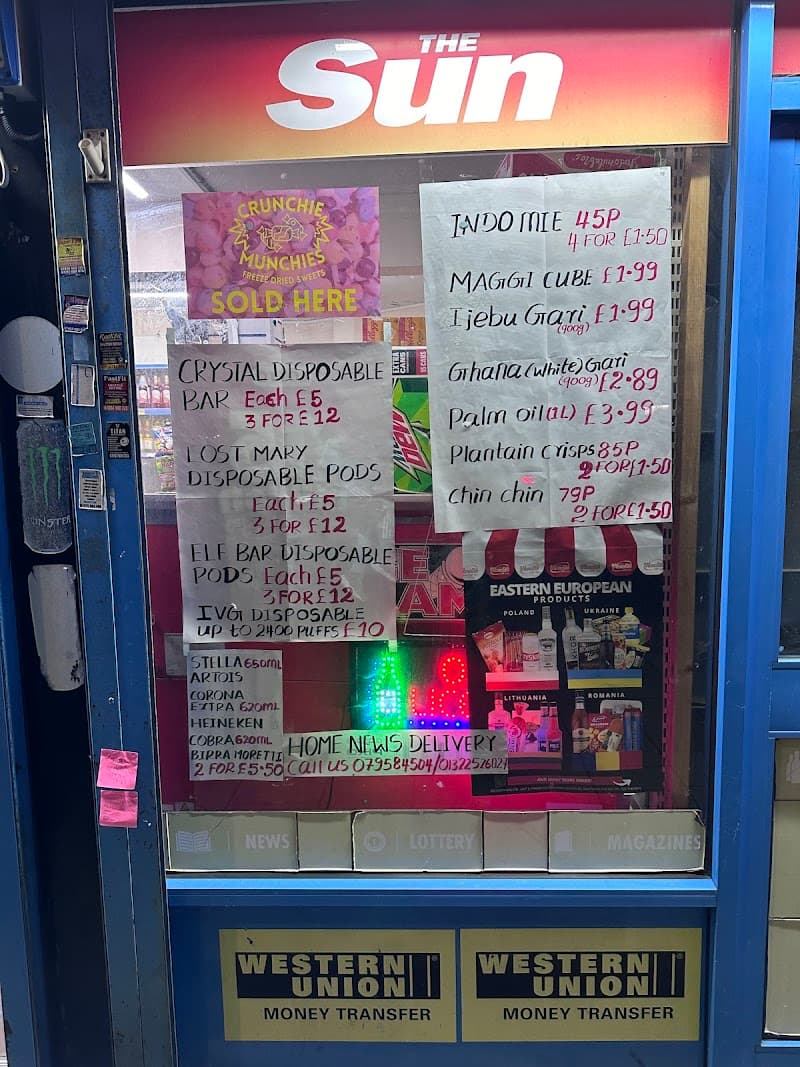 THE
Sun
CRUNCHIE
MUNCHIES
FREEZE DRIED SWEETS
SOLD HERE
CRYSTAL DISPOSABLE
BAR Each £5
3 FOR £12
LOST MARY
DISPOSABLE PODS
Each £5
3 FOR £12
ELF BAR DISPOSABLE
PODS Each £5
3 FOR £12
IVG DISPOSABLE
up to 2400 PUFFS £10
STELLA 650ML
ARTOIS
CORONA
EXTRA 620ML
HEINEKEN
COBRA 620ML
BIRRA MORETTI
2 FOR £5.50
HOME NEWS DELIVERY
Call us 079584504/01322526027
INDO MIE 45P
4 FOR £1.50
MAGGI CUBE £1.99
Ijebu Gari £1.99
(900g)
Ghana (white) Gari
(900g) £2.89
Palm oil (1L) £3.99
Plantain crisps 85P
2 FOR £1.50
Chin chin 79P
2 FOR £1.50
EASTERN EUROPEAN
PRODUCTS
POLAND UKRAINE
LITHUANIA ROMANIA
MONSTER
NEWS LOTTERY MAGAZINES
WESTERN
UNION
MONEY TRANSFER
WESTERN
UNION
MONEY TRANSFER